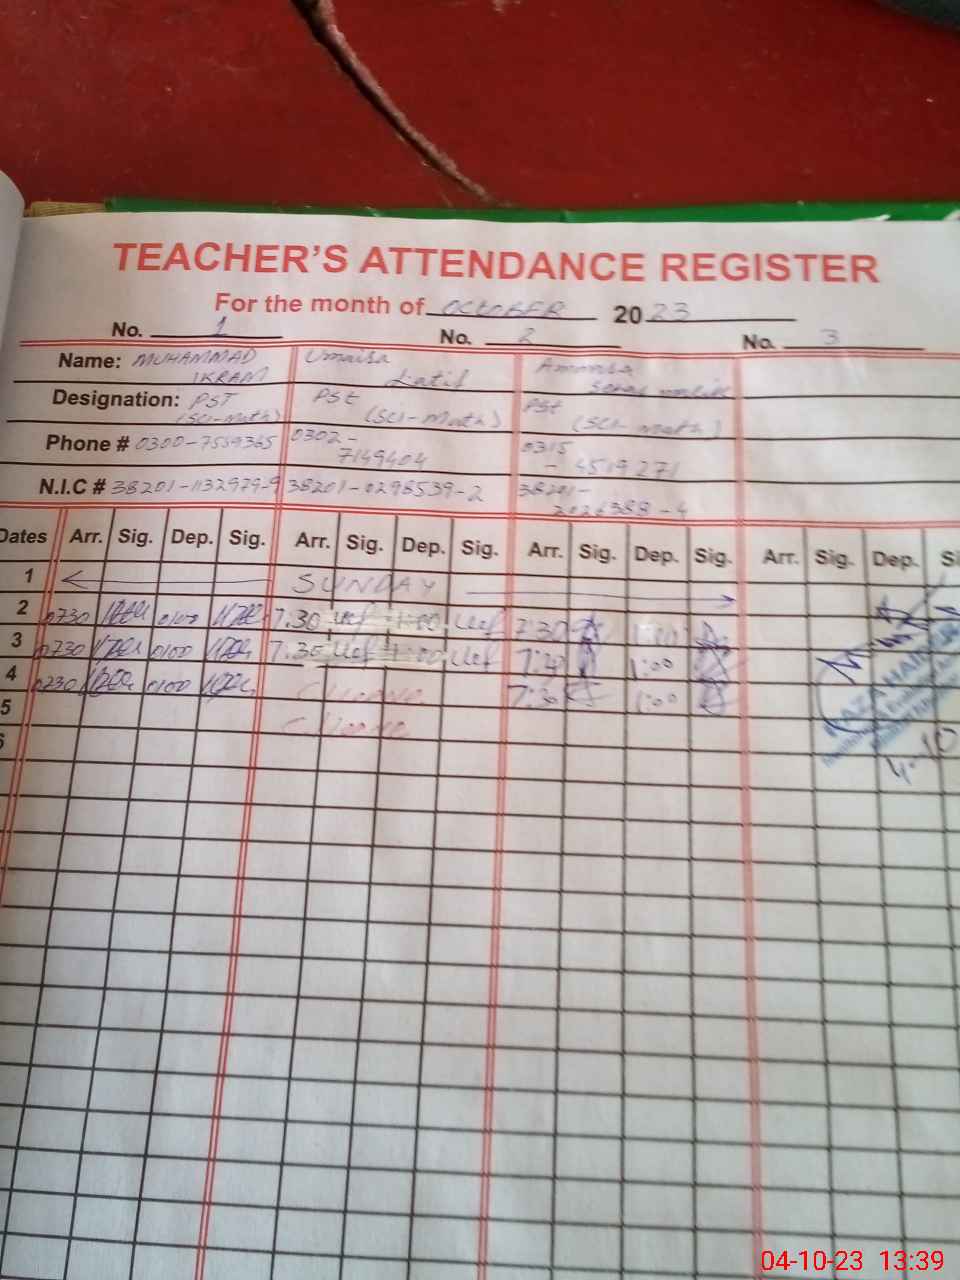 TEACHER'S ATTENDANCE REGISTER
For the month of OCTOBER 2023
No. 1 No. 2 No. 3
Name: MUHAMMAD IKRAM Umaisa Latif
Designation: PST (SCI-Math) PSt (SCI-Math) PSt (SCI-math)
Phone # 0300-7559365 0302-7149404 0315-4519271
N.I.C # 38201-1132979-9 38201-0298539-2 38201-2026388-4
Dates Arr. Sig. Dep. Sig. Arr. Sig. Dep. Sig. Arr. Sig. Dep. Sig. Arr. Sig. Dep.
1 SUNDAY
2 0730 0100 7.30 1:00 7:30 1:00
3 0730 0100 7.30 1:00 7:30 1:00
4 0730 0100 7:30 1:00
5
6
4-10
04-10-23 13:39